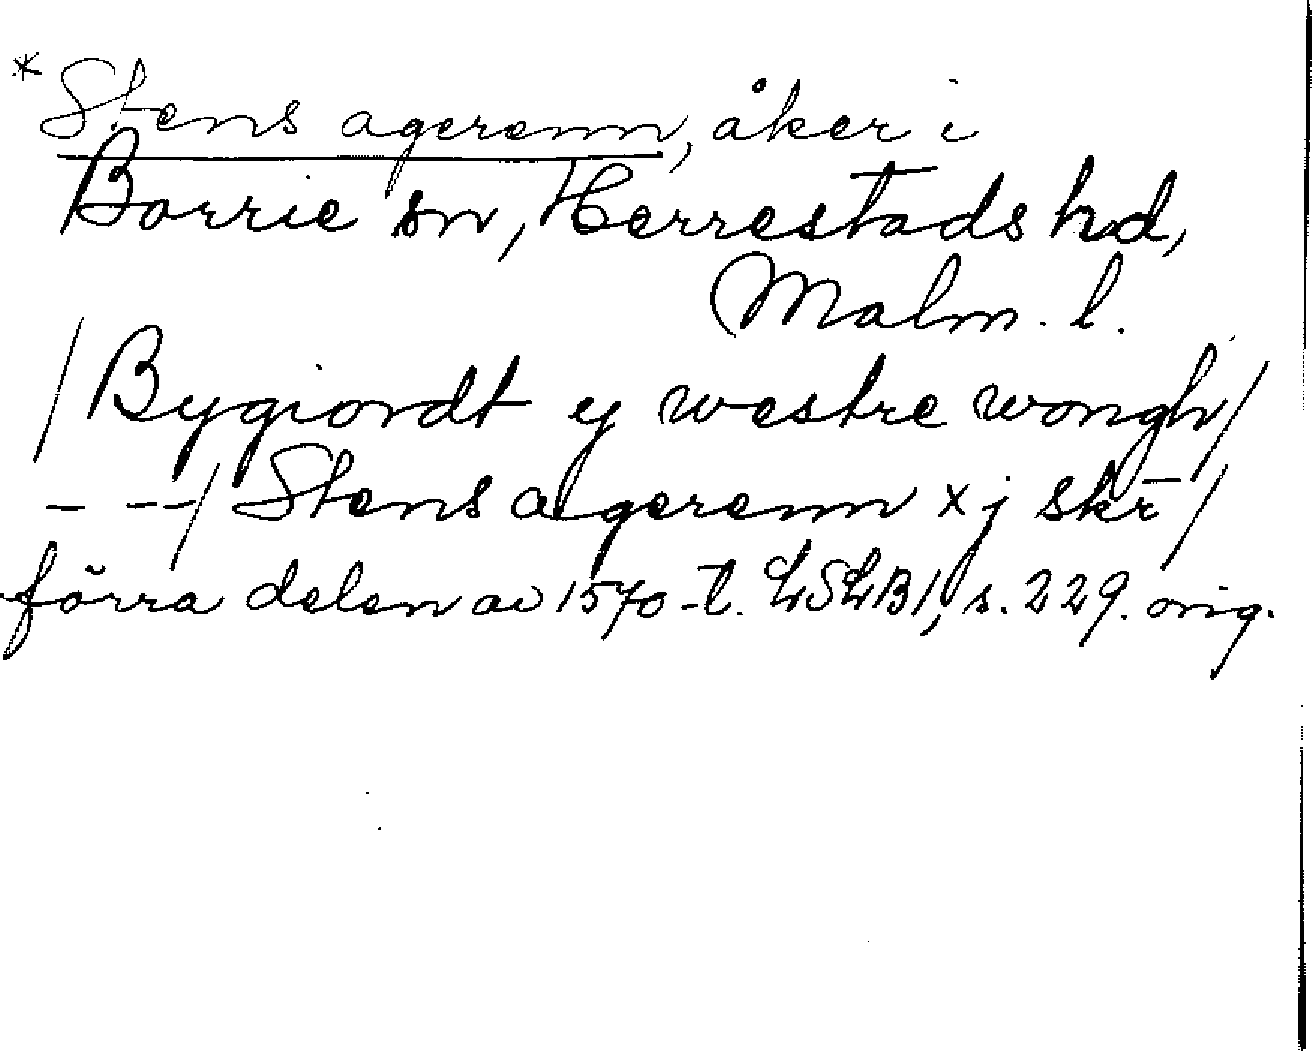 *Stens agerenn, åker i
Borrie sn, Herrestads hd,
Malm. l.
/Bygiordt y westre wongh/
- --/ Stens agerenn xj skr̄/
förra delen av 1570-t. LSLB1, s. 229. orig.